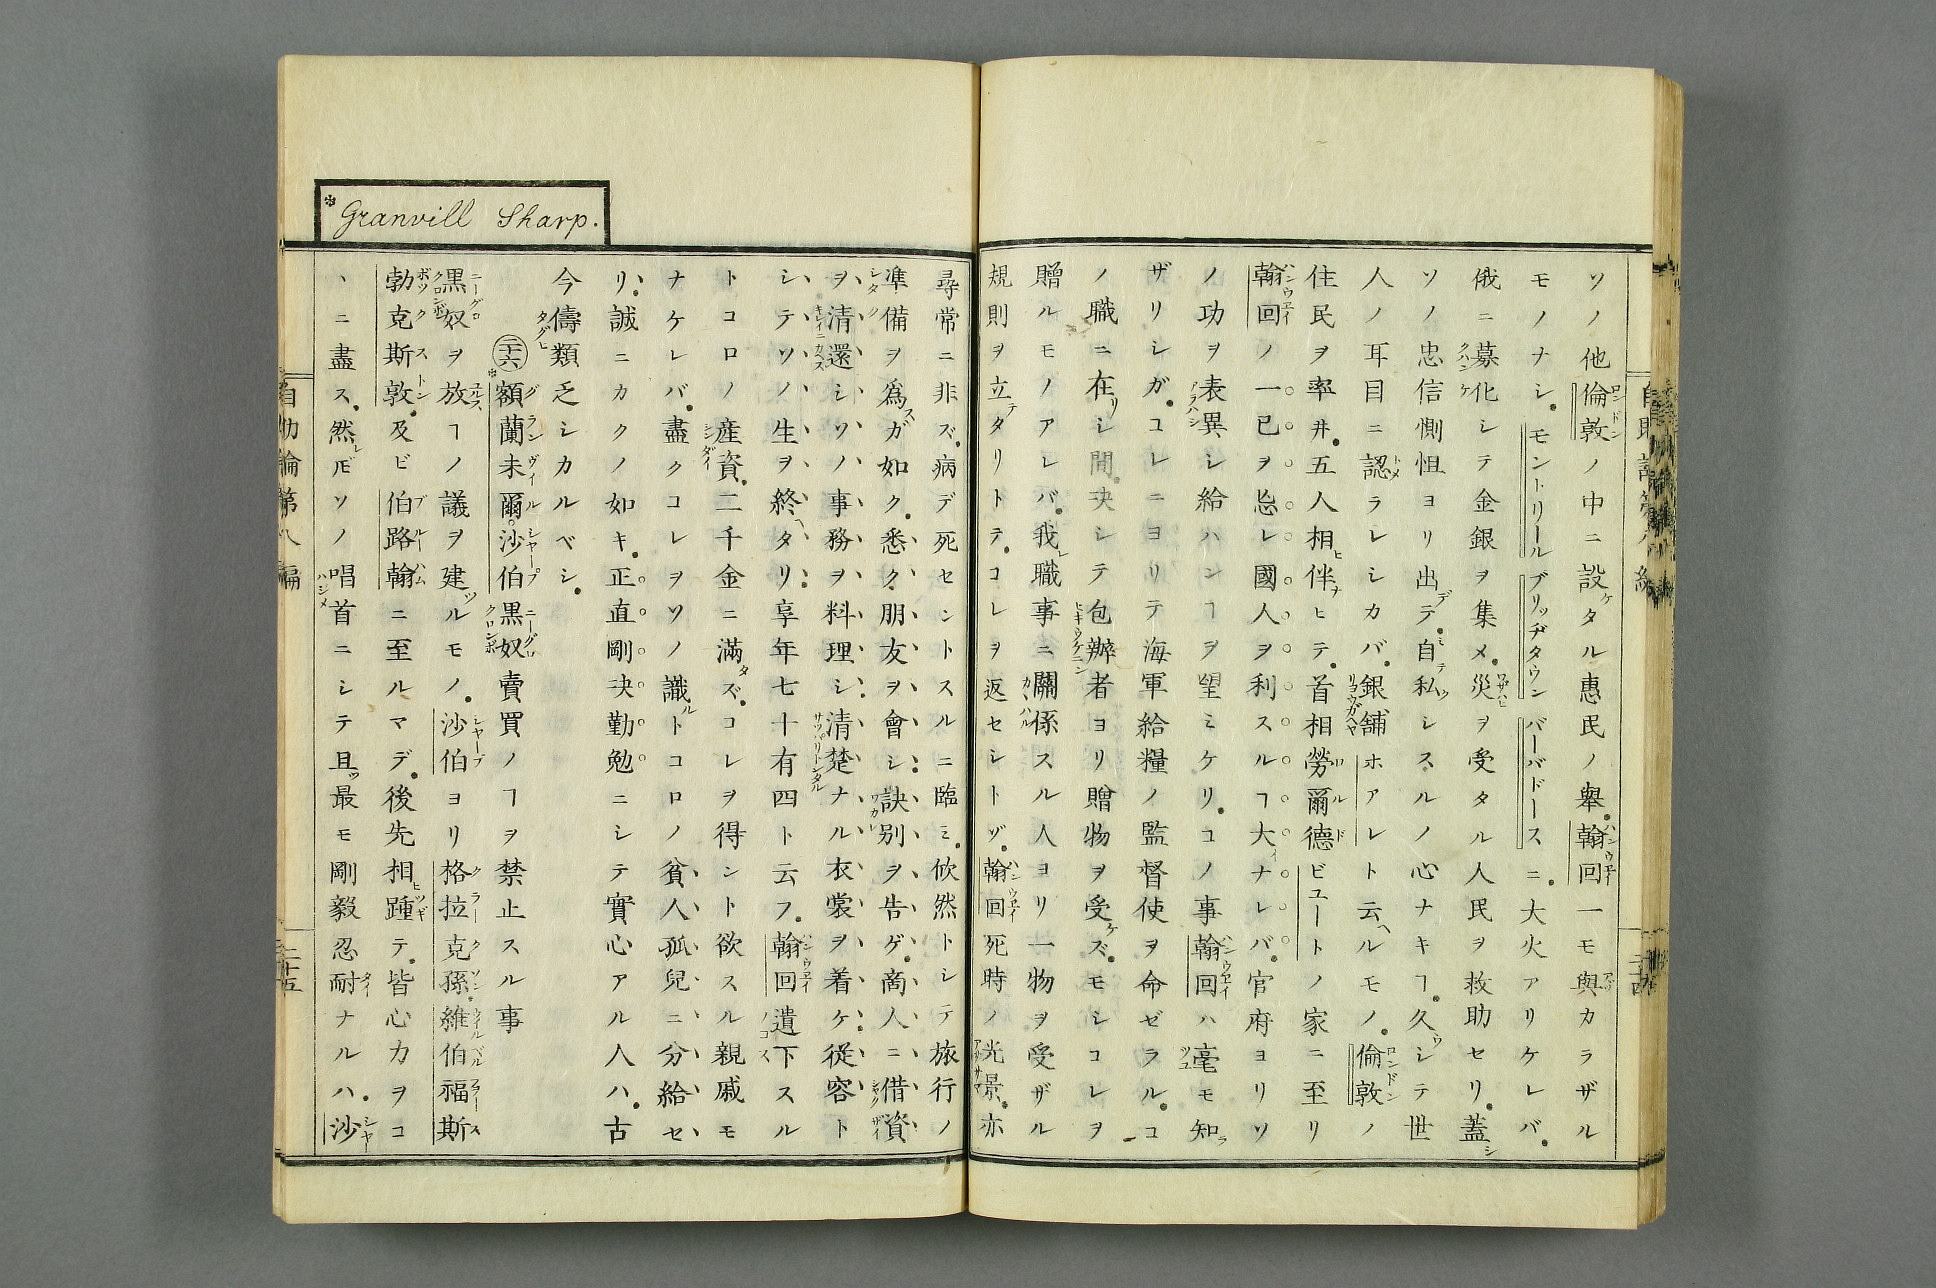 ソノ他倫敦ノ中ニ設ケタル惠民ノ擧翰回一モ與カラザル
モノナシ。モントリールブリッヂタウンバーバドースニ。大火アリケレバ。
俄ニ募化シテ金銀ヲ集メ。災ヲ受タル人民ヲ救助セリ。蓋シ
ソノ忠信惻怛ヨリ出デテ。自ミテ私シスルノ心ナキヿ。久ウシテ世
人ノ耳目ニ認ラレシカバ。銀舗ホアレト云ヘルモノ。倫敦ノ
住民ヲ率井。五人相ヒ伴ナヒテ。首相勞爾德ビユートノ家ニ至リ
翰回ノ一己ヲ忘レ國人ヲ利スルヿ大イナレバ。官府ヨリソ
ノ功ヲ表異シ給ハンヿヲ望ミケリ。コノ事翰回ハ毫モ知ラ
ザリシガ。コレニヨリテ海軍給糧ノ監督使ヲ命ゼラル。コ
ノ職ニ在リシ間。決シテ包辦者ヨリ贈物ヲ受ケズ。モシコレヲ
贈ルモノアレバ。我レ職事ニ關係スル人ヨリ一物ヲ受ザル
規則ヲ立テタリトテ。コレヲ返セシトゾ。翰回死時ノ光景。亦
尋常ニ非ズ。病デ死セントスルニ臨ミ。俟然トシテ旅行ノ
凖備ヲ爲スガ如ク。悉ク朋友ヲ會シ訣別ヲ告ゲ。商人ニ借資
ヲ清還シソノ事務ヲ料理シ。清楚ナル衣裳ヲ着ケ。從容ト
シテソノ生ヲ終ヘタリ。享年七十有四ト云フ。翰回遺下スル
トコロノ産資。二千金ニ滿タズ。コレヲ得ント欲スル親戚モ
ナケレバ。盡クコレヲソノ識ルトコロノ貧人孤兒ニ分給セ
リ。誠ニカクノ如キ。正直剛決勤勉ニシテ實心アル人ハ。古
今儔類乏シカルベシ。
*Granvill Sharp.
㊁十六 *額蘭未爾。沙伯黒奴賣買ノヿヲ禁止スル事
黒奴ヲ放ツヿノ議ヲ建ツルモノ。沙伯ヨリ格拉克孫。維伯福斯
勃克斯敦。及ビ伯路翰ニ至ルマデ。後先相ヒ踵テ。皆心力ヲコ
ヽニ盡ス。然レ𪜈ソノ唱首ニシテ且ツ最モ剛毅忍耐ナルハ。沙
自助論第八編
二十五